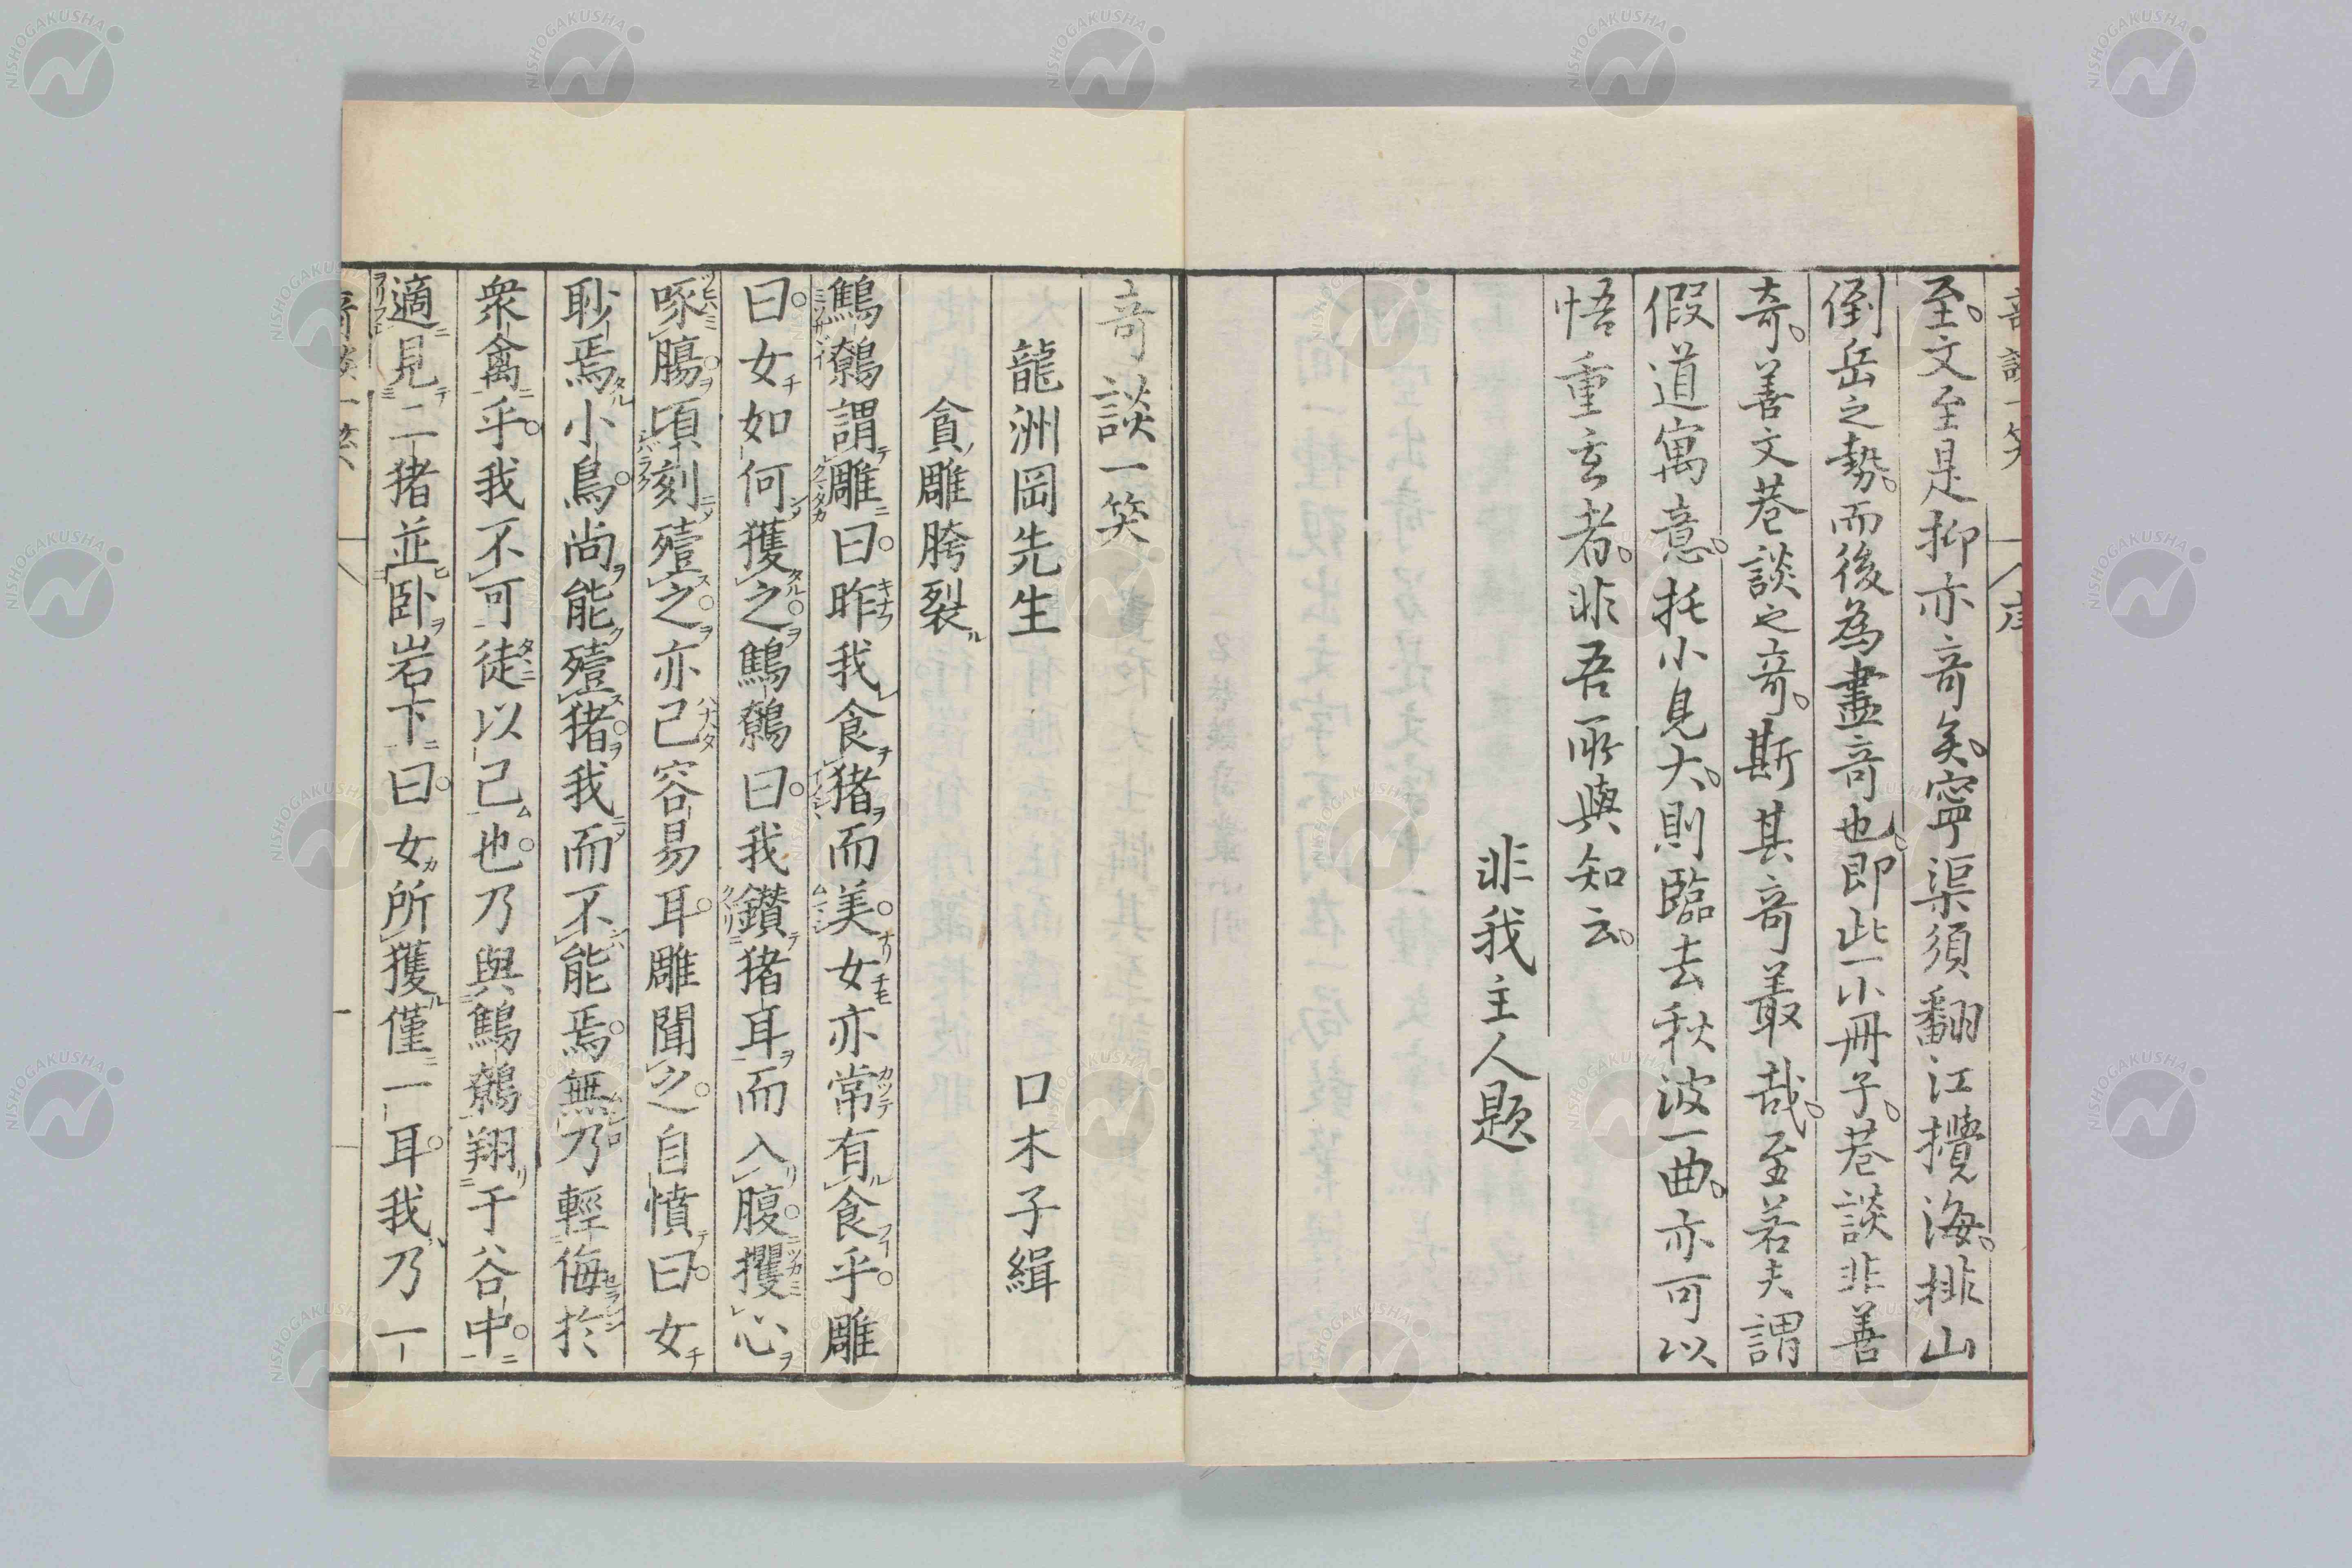 至文至是抑亦竒矣寧渠須翻江攪海排山
倒岳之勢而後為盡竒也即此一小冊子巷談非善
奇善文巷談之竒斯其竒叢哉至若夫謂
假道寓意托小見大則臨去秋波一曲亦可以
悟重玄者非吾所與知云
非我主人題
竒談一笑
龍洲岡先生 口木子緝
貪雕胯裂
鷦鷯謂雕曰昨我食猪而美女亦常有食乎雕
曰女如何獲之鷦鷯曰我鑚猪耳而入腹攫心
啄腸頃刻殪之亦已容易耳雕聞之自憤曰女
眇焉小鳥尚能殪猪我而不能焉無乃輕侮於
衆禽乎我不可徒以已也乃與鷦鷯翔于谷中
適見二猪並卧岩下曰女所獲僅一耳我乃一
NISHOGAKUSHA